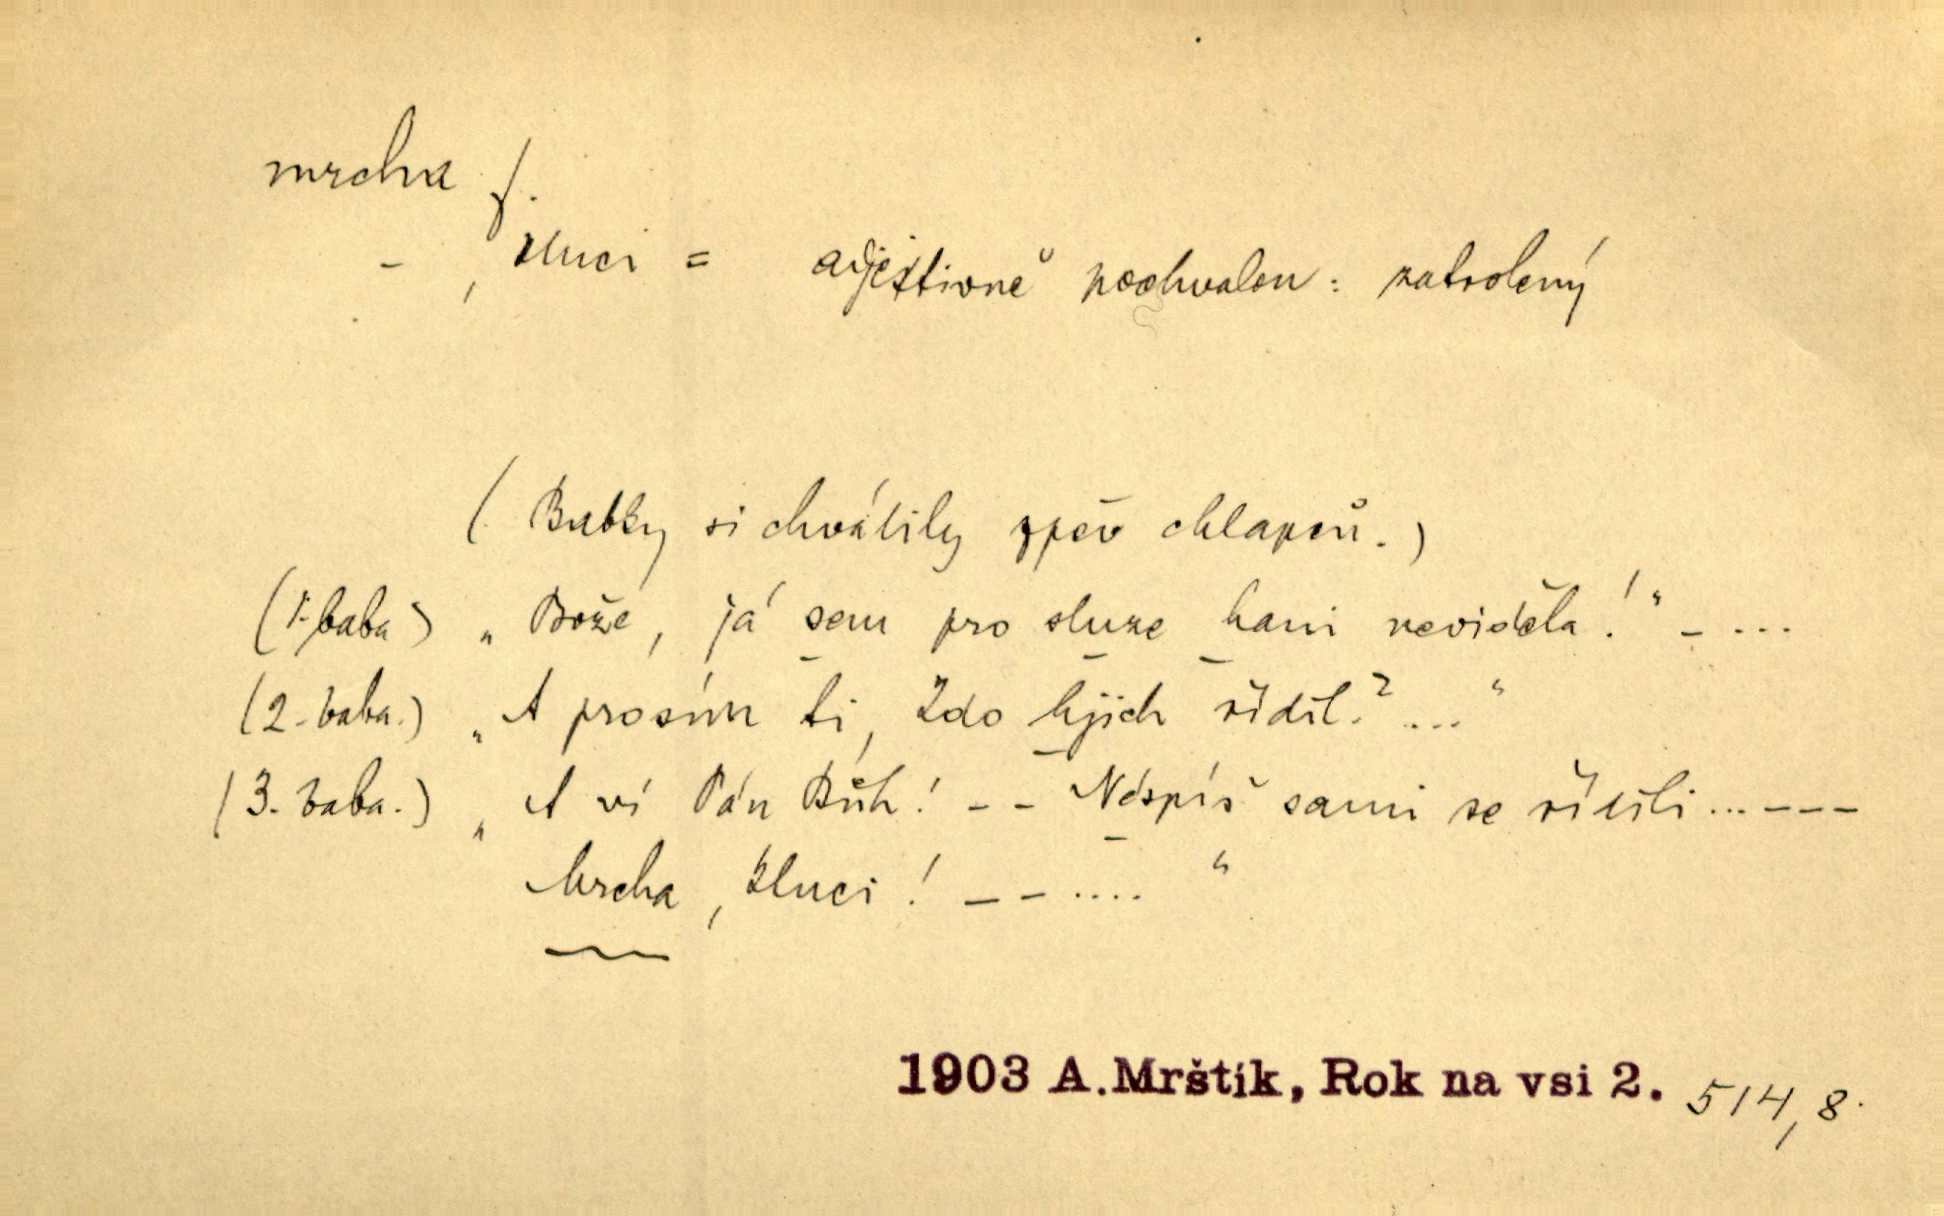 mrcha f.
– , kluci = adjektivně pochvalou: zatrolený
(Babky si chválily zpěv chlapců.)
(1. baba) „Bože, já sem pro sluze hani neviděla!“ – ...
(2. baba.) „A prosím ti, kdo hjich řídíl? ... “
(3. baba.) „A ví Pán Bůh! – – Néspíš sami se řídíli ... – – –
Mrcha, kluci! – – .... “
1903 A. Mrštík, Rok na vsi 2. 514, 8.